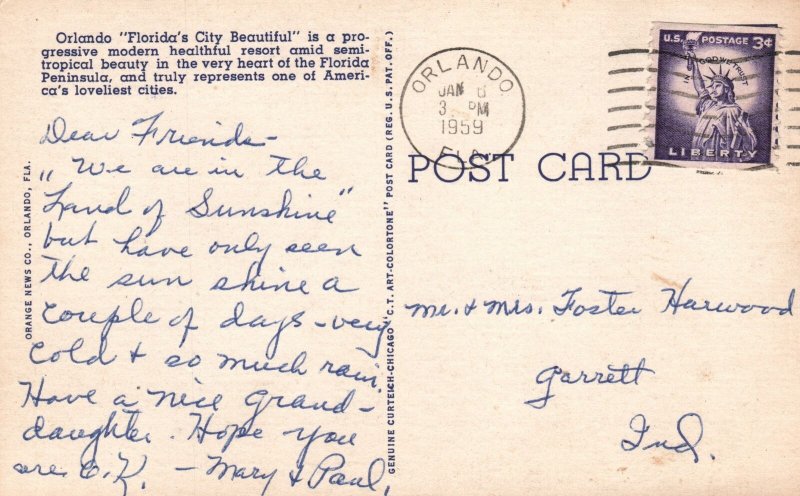 Orlando "Florida's City Beautiful" is a pro-
gressive modern healthful resort amid semi-
tropical beauty in the very heart of the Florida
Peninsula, and truly represents one of Ameri-
ca's loveliest cities.
Dear Friends-
"We are in the
Land of Sunshine"
but have only seen
the sun shine a
couple of days - very
cold & so much rain.
Have a nice grand-
daughter. Hope you
are O.K. - Mary & Paul,
ORANGE NEWS CO., ORLANDO, FLA.
GENUINE CURTEICH-CHICAGO "C.T. ART-COLORTONE" POST CARD (REG. U.S. PAT. OFF.)
ORLANDO
JAN 6
3 PM
1959
FLA.
U.S. POSTAGE 3¢
IN GOD WE TRUST
LIBERTY
POST CARD
Mr. & Mrs. Foster Harwood
Garrett
Ind.